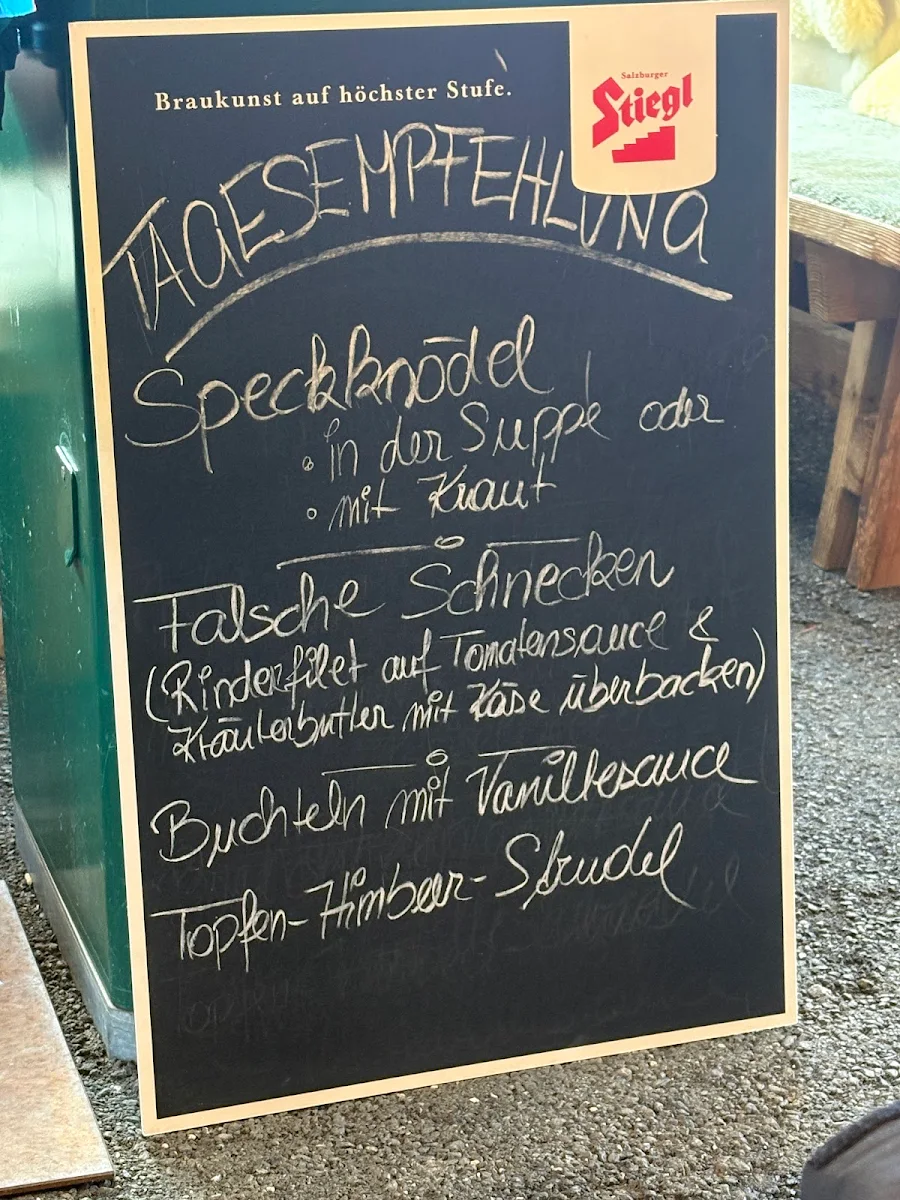 Braukunst auf höchster Stufe.
Salzburger
Stiegl
TAGESEMPFEHLUNG
Speckknödel
• in der Suppe oder
• mit Kraut
Falsche Schnecken
(Rinderfilet auf Tomatensauce &
Kräuterbutter mit Käse überbacken)
Buchteln mit Vanillesauce
Topfen-Himbeer-Strudel